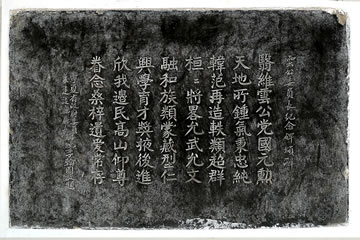 翳維雲公党國元勳
天地所鍾氣秉忠純
韓范再造軼類超群
桓桓將略允武允文
融和族類蒙藏型仁
興學育才獎掖後進
欣我邊民高山仰尊
眷念桑梓遺愛常存